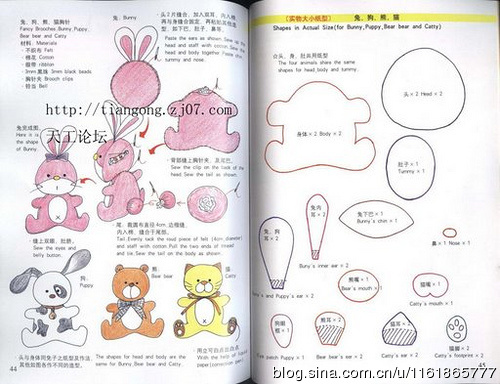 兔,狗,熊,猫胸针
Fancy Brooches,Bunny,Puppy,
Bear bear and Catty
材料:Materials
・不织布 Felt
・棉花 Cotton
・缎带 ribbon
・3mm黑珠 3mm black beads
・胸针夹 Brooch clips
・铃当 Bell
兔:Bunny
・头2片缝合,加入双耳,内入棉,
再与身缝合固定,再粘各内造
型,如下巴,肚子,鼻等.
Paste the ears as shown. Sew the
head and staff with cotton. Sew the
head and body together. Paste the
tummy and nose.
http://tiangong.zj07.com
天工论坛
兔完成图.
Here it is
the shape
of Bunny.
・背部缝上胸针夹,及尾巴.
Sew the clip on the back of the
head. Sew the tail as shown.
・缝上双眼,肚脐.
Sew the eyes and
belly button.
・尾:裁圆布直径4cm,边粗缝,
内入棉,缝合于尾部.
Tail:Evenly tack the round piece of felt (4cm_diameter)
and staff with cotton.Pull the two ends of thread
and tie.Sew the tail on the body as shown.
狗:
Puppy
熊:
Bear bear
猫:
Catty
头与身体同兔子之纸型及作法,
其他如图各作不同的造型.
The shapes for head and body are the
same for Bunny,Bear bear and Catty.
44
【实物大小纸型】
兔、狗、熊、猫
Shapes in Actual Size(for Bunny,Puppy,Bear bear and Catty)
The four animals share the same
shapes for head,body and tummy.
头×2 Head×2
身体×2 Body×2
肚子×1
Tummy×1
兔、狗
耳×2
兔内
耳×2
兔下巴×1
Bunny's chin×1
鼻×1 Nose×1
Bunny's and Puppy's ear×2
Buny's inner ear×2
熊嘴×1
Bear's mouth×1
猫嘴×1
Catty's mouth×1
狗眼
框×1
Eye patch Puppy×1
熊耳×2
Bear's ear×2
猫耳×2
Catty's ear×2
猫脚×2
Catty's footprint×2
45
blog.sina.com.cn/u/1161865777